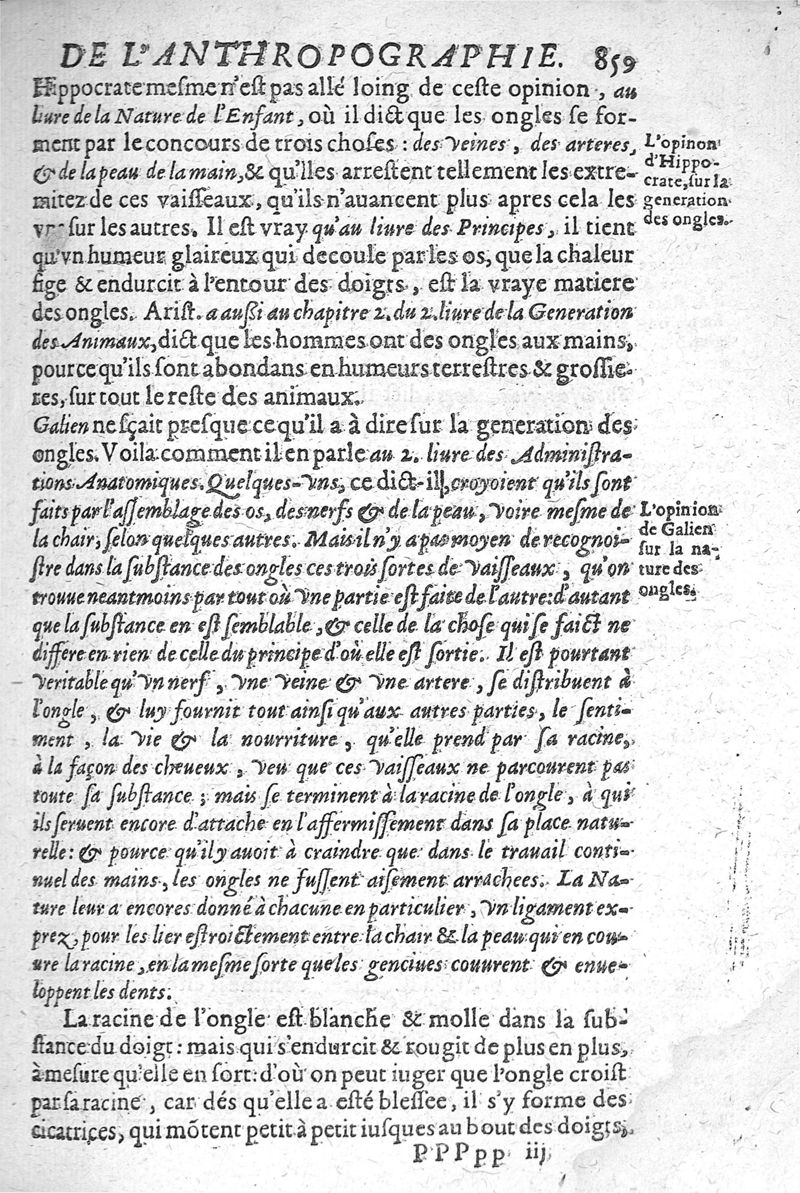 DE L'ANTHROPOGRAPHIE. 859
Hippocrate mesme n'est pas allé loing de ceste opinion, au
liure de la Nature de l'Enfant, où il dict que les ongles se for-
ment par le concours de trois choses : des veines, des arteres,
& de la peau de la main, & qu'lles arrestent tellement les extre-
mitez de ces vaisseaux, qu'ils n'auancent plus apres cela les
sur les autres. Il est vray qu'au liure des Principes, il tient
qu'vn humeur glaireux qui decoule par les os, que la chaleur
fige & endurcit à l'entour des doigts, est la vraye matiere
des ongles. Arist. a außi au chapitre 2. du 2. liure de la Generation
des Animaux, dict que les hommes ont des ongles aux mains,
pource qu'ils sont abondans en humeurs terrestres & grossie-
res, sur tout le reste des animaux.
L'opinon
d'Hippo-
crate, sur la
generation
des ongles.
Galien ne sçait presque ce qu'il a à dire sur la generation des
ongles. Voila comment il en parle au 2. liure des Administra-
tions Anatomiques. Quelques-vns, ce dict-il, croyoient qu'ils sont
faits par l'assemblage des os, des nerfs & de la peau, voire mesme de
la chair, selon quelques autres. Mais il n'y a pas moyen de recognoi-
stre dans la substance des ongles ces trois sortes de vaisseaux, qu'on
trouue neantmoins par tout où vne partie est faite de l'autre: d'autant
que la substance en est semblable, & celle de la chose qui se faict ne
differe en rien de celle du principe d'où elle est sortie. Il est pourtant
veritable qu'vn nerf, vne veine & vne artere, se distribuent à
l'ongle, & luy fournit tout ainsi qu'aux autres parties, le senti-
ment, la vie & la nourriture, qu'elle prend par sa racine,
à la façon des cheueux, veu que ces vaisseaux ne parcourent pas
toute sa substance ; mais se terminent à la racine de l'ongle, à qui
ils seruent encore d'attache en l'affermissement dans sa place natu-
relle : & pource qu'il y auoit à craindre que dans le trauail conti-
nuel des mains, les ongles ne fussent aisement arrachees. La Na-
ture leur a encores donné à chacune en particulier, vn ligament ex-
prez, pour les lier estroictement entre la chair & la peau qui en cou-
ure la racine, en la mesme sorte que les genciues couurent & enue-
loppent les dents.
L'opinion
de Galien
sur la na-
ture des
ongles.
La racine de l'ongle est blanche & molle dans la sub-
stance du doigt : mais qui s'endurcit & rougit de plus en plus,
à mesure qu'elle en sort: d'où on peut iuger que l'ongle croist
par sa racine, car dés qu'elle a esté blessee, il s'y forme des
cicatrices, qui mõtent petit à petit iusques au bout des doigts,
PPPpp iij